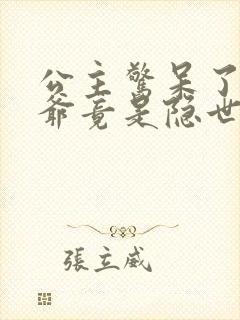 公主驚呆了
爺竟是隐世
張立威